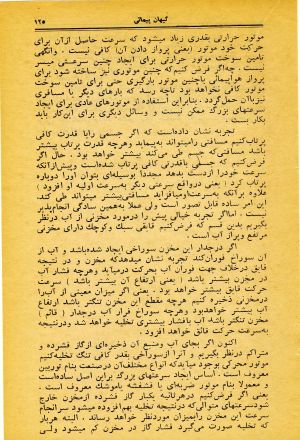 کیهان پیمائی ۱۲۵
موتور حرارتی بقدری زیاد میشود که سرعت حاصل ازآن برای
حرکت خود موتور (یعنی پرواز دادن آن) کافی نیست . وانگهی
تامین سوخت موتور حرارتی برای ایجاد چنین سرعتی میسر
نیست . چه‌اگر فرض کنیم‌که چنین موتوری نیز ساخته شود برای
پرواز هواپیمائی باچنین موتور بارگیری حتی برای تامین سوخت
موتور کافی نخواهد بود تاچه رسد که بارهای دیگر یا مسافری
نیزباآن حمل‌گردد . بنابراین استفاده از موتورهای عادی برای ایجاد
سرعتهای بزرگ ممکن نیست و وسائل دیگری برای این‌کار باید
بکار برد .
تجربه نشان داده‌است که اگر جسمی رابا قدرت کافی
پرتاب‌کنیم مسافتی رامیتواند بپیماید وهرچه قدرت پرتاب بیشتر
باشد مسافتی‌که جسم طی می‌کند بیشتر خواهد بود . حال اگر
فرض‌کنیم که جسمی باقدرتی کافی پرتاب شده‌است وپیش‌ازآنکه
سرعت خودرا ازدست بدهد مجددا بوسیله‌ای بتوان اورا دوباره
پرتاب کرد (یعنی درواقع سرعتی دیگر به‌سرعت اولیه او افزود)
علاوه برآنکه به‌سرعت‌اومیافزاید مسافتی‌بیشتر میتواند طی کند.
این امر ساده قابل تصور است ولی عملا به‌همین سادگی انجام‌پذیر
نیست . امااگر تجربه خیالی پیش را درمورد مخزنی از آب درنظر
بگیریم بدین قسم که فرض‌کنیم قایقی سبک وکوچک دارای مخزنی
مرتفع وپراز آب است .
اگر درجدار این مخزن سوراخی ایجاد شده‌باشد و آب از
آن سوراخ فوران‌کند تجربه نشان میدهدکه مخزن و در نتیجه
قایق درخلاف جهت فوران آب بحرکت درمیاید وهرچه فشار آب
در مخزن بیشتر باشد (یعنی ارتفاع آن بیشتر باشد) سرعت
حرکت قایق بیشتر خواهد بود . یعنی اگر میزان معینی از آب‌را
درمخزنی ذخیره کنیم هرچه مقطع این مخزن تنگتر باشد ارتفاع
آب بیشتر خواهدبود وهرچه سوراخ فرار آب درجدار (قائم)
مخزن تنگتر باشد آب بافشار بیشتری تخلیه خواهد شد ودرنتیجه
به‌سرعت حرکت قائق خواهد افزود .
اکنون اگر بجای آب ومنبع آن ذخیره‌ای ازگاز فشرده و
متراکم درنظر بگیریم و آنرا ازسوراخی بقدر کافی تنگ تخلیه‌کنیم
موتور محرکی بوجود میاید که انواع مختلف‌آن درصنعت بنام توربین
معروف است . اساس ایجاد سرعتهای بزرگ براین اصل ساده‌است
و معمولا بنام موتور ضربه‌ای یا فشفشه یاموشک معروف است .
یعنی اگر فرض‌کنیم درهرثانیه یکبار گاز فشرده ازمخزن خارج
شودسرعتهای متوالی‌که درنتیجه تخلیه بهم‌افزوده میشود سرانجام
سرعت کافی رابرای حرکت موردنظر خواهد رساند . البته هربار
که تخلیه صورت می‌گیرد فشار گاز در مخزن کم میشود ولی